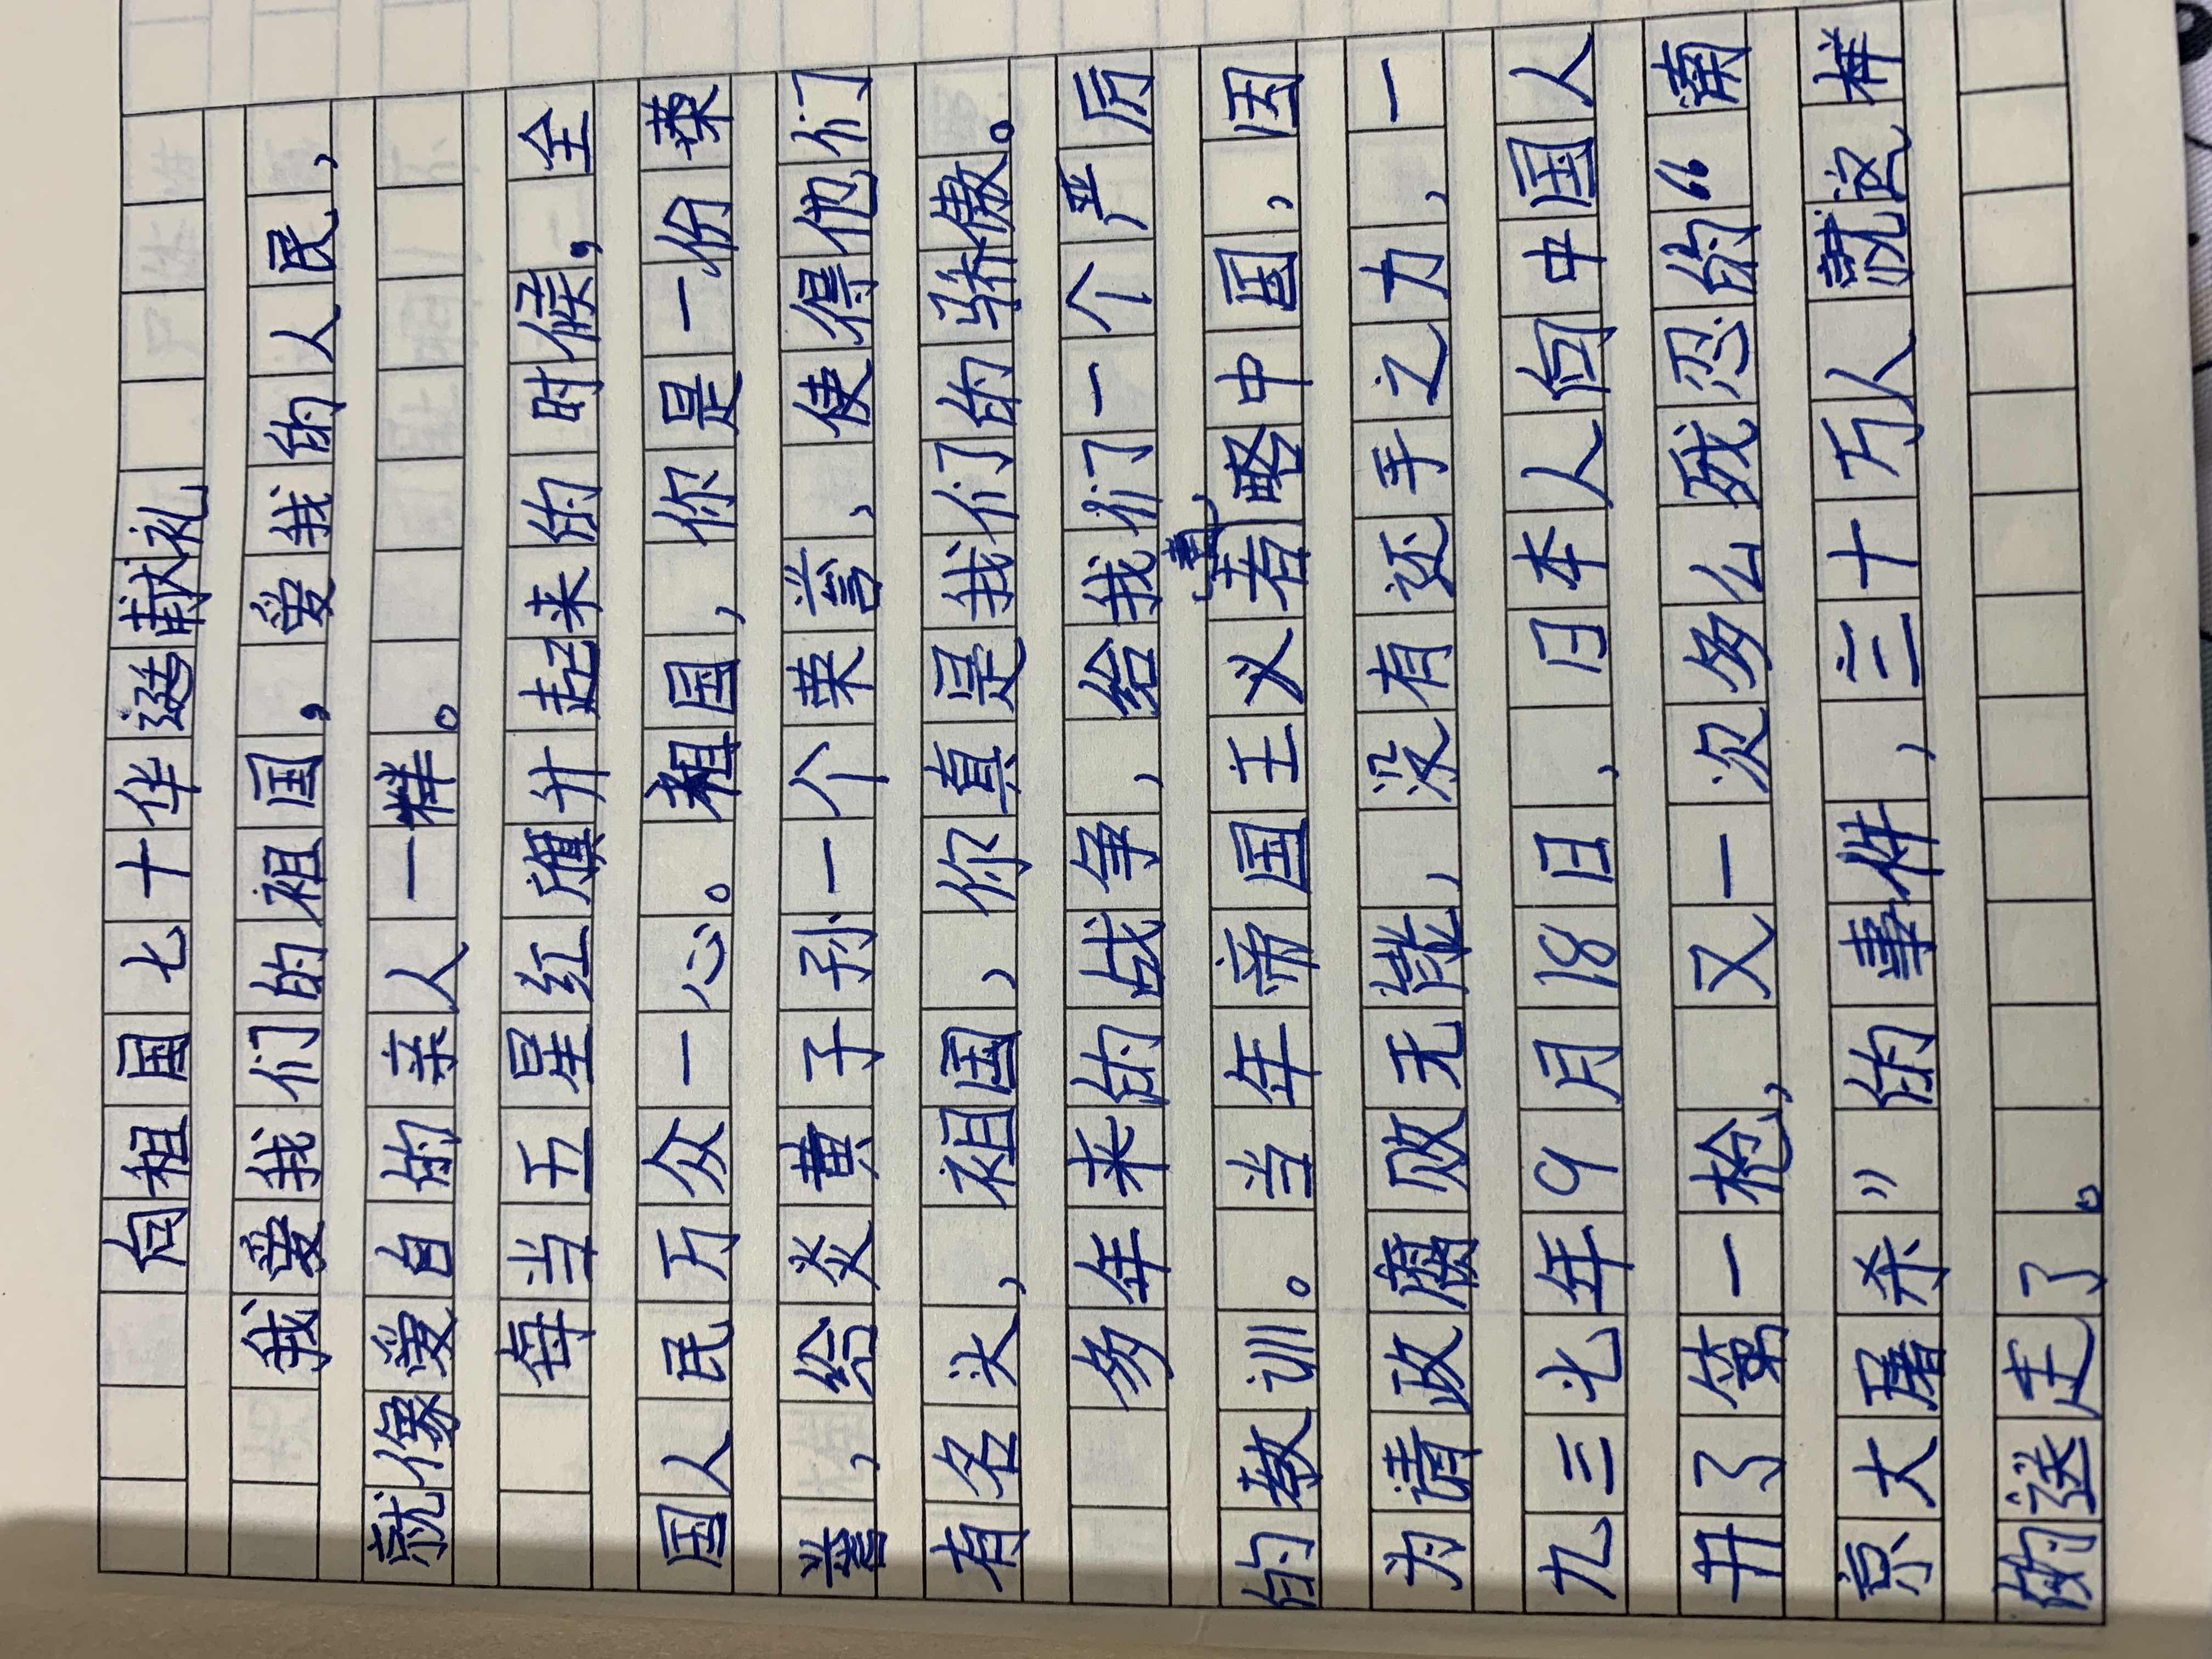 向祖国七十华诞献礼
我爱我们的祖国，爱我的人民，
就像爱自的亲人一样。
每当五星红旗升起来的时候，全
国人民万众一心。祖国，你是一份荣
誉，给炎黄子孙一个荣誉，使得他们
有名头，祖国，你真是我们的骄傲。
多年来的战争，给我们一个严厉
的教训。当年帝国主义着略中国，因
为清政腐败无能，没有还手之力，一
九三七年9月18日，日本人向中国人
开了第一枪，又一次多么残忍的“南
京大屠杀”的事件，三十万人就这样
的送走了。